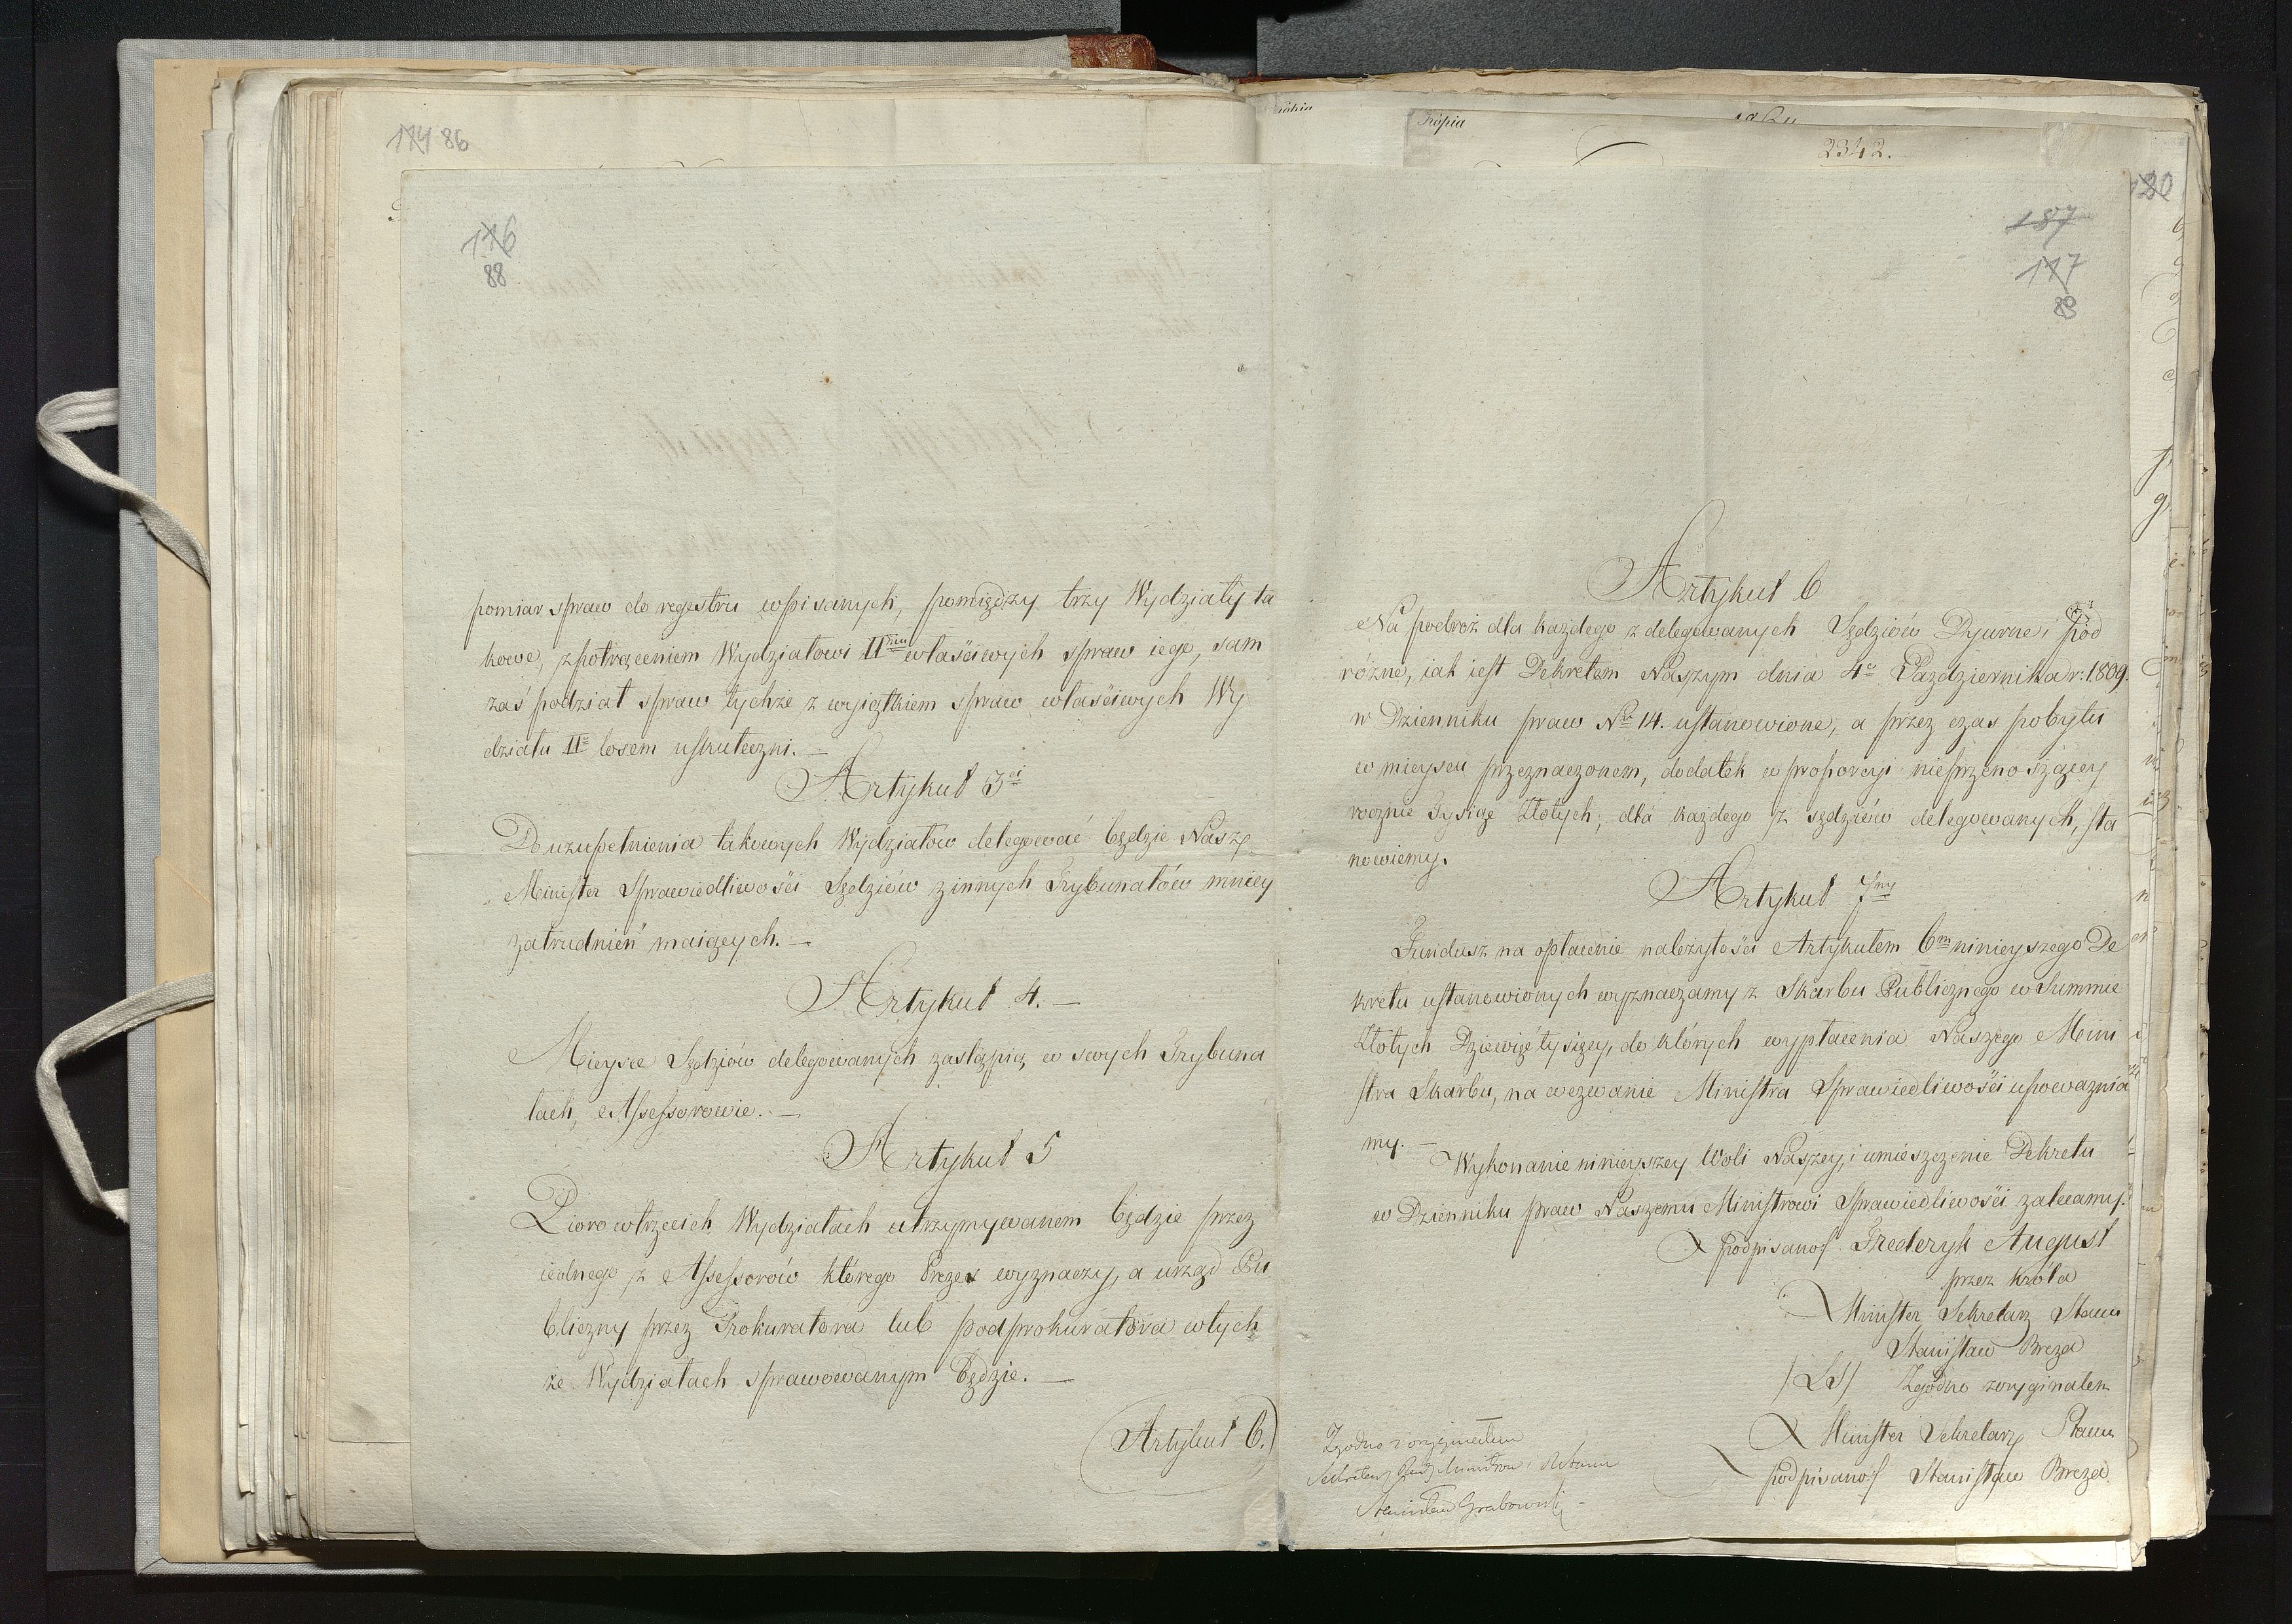 174 86
116
88
pomiar spraw do regestru wpisanych, pomiędzy trzy Wydziały ta
kowe, z potrąceniem Wydziałowi II właściwych spraw iego, sam
zaś podział spraw tychże z wyjątkiem spraw właściwych Wy
działu II losem uskuteczni. —
Artykuł 3ci
Do uzupełnienia takowych Wydziałów delegować będzie Nasz
Minister Sprawiedliwości Sędziów z innych Trybunałów mniey
zatrudnień maiących. —
Artykuł 4. —
Mieysce Sędziów delegowanych zastąpią, w swych Trybuna
łach, Assessorowie. —
Artykuł 5
Pioro w trzecich Wydziałach utrzymywanem będzie przez
iednego z Assessorów którego Prezes wyznaczy, a urząd Pu
bliczny przez Prokuratora lub podprokuratora w tych
że Wydziałach sprawowanym będzie. —
Artykuł 6.
Kopia
2342.
120
187
117
89
Artykuł 6
Na podróż dla każdego z delegowanych Sędziów Dyurne i pod
różne, iak iest Dekretem Naszym dnia 4o Października r: 1809.
w Dzienniku praw No 14. ustanowione, a przez czas pobytu
w mieyscu przeznaczonem, dodatek w proporcyi nieprzenoszącey
rocznie Tysiąc Złotych, dla każdego z sędziów delegowanych, sta
nowiemy.
Artykuł 7my
Fundusz na opłacenie należytości Artykułem 6m ninieyszego De
kretu ustanowionych wyznaczamy z Skarbu Publicznego w Summie
Złotych Dziewięć tysięcy, do których wypłacenia Naszego Mini
stra Skarbu, na wezwanie Ministra Sprawiedliwości upoważnia
my. —
Wykonanie ninieyszey Woli Naszey, i umieszczenie Dekretu
w Dzienniku praw Naszemu Ministrowi Sprawiedliwości zalecamy.
podpisano/ Frederyk August
przez Króla
Minister Sekretarz Stanu
Stanisław Breza
/LS/ Zgodno z oryginałem
Minister Sekretarz Stanu
podpisano/ Stanisław Breza
Zgodno z oryginałem
Sekretarz Rady Ministrów i Stanu
Stanisław Grabowski